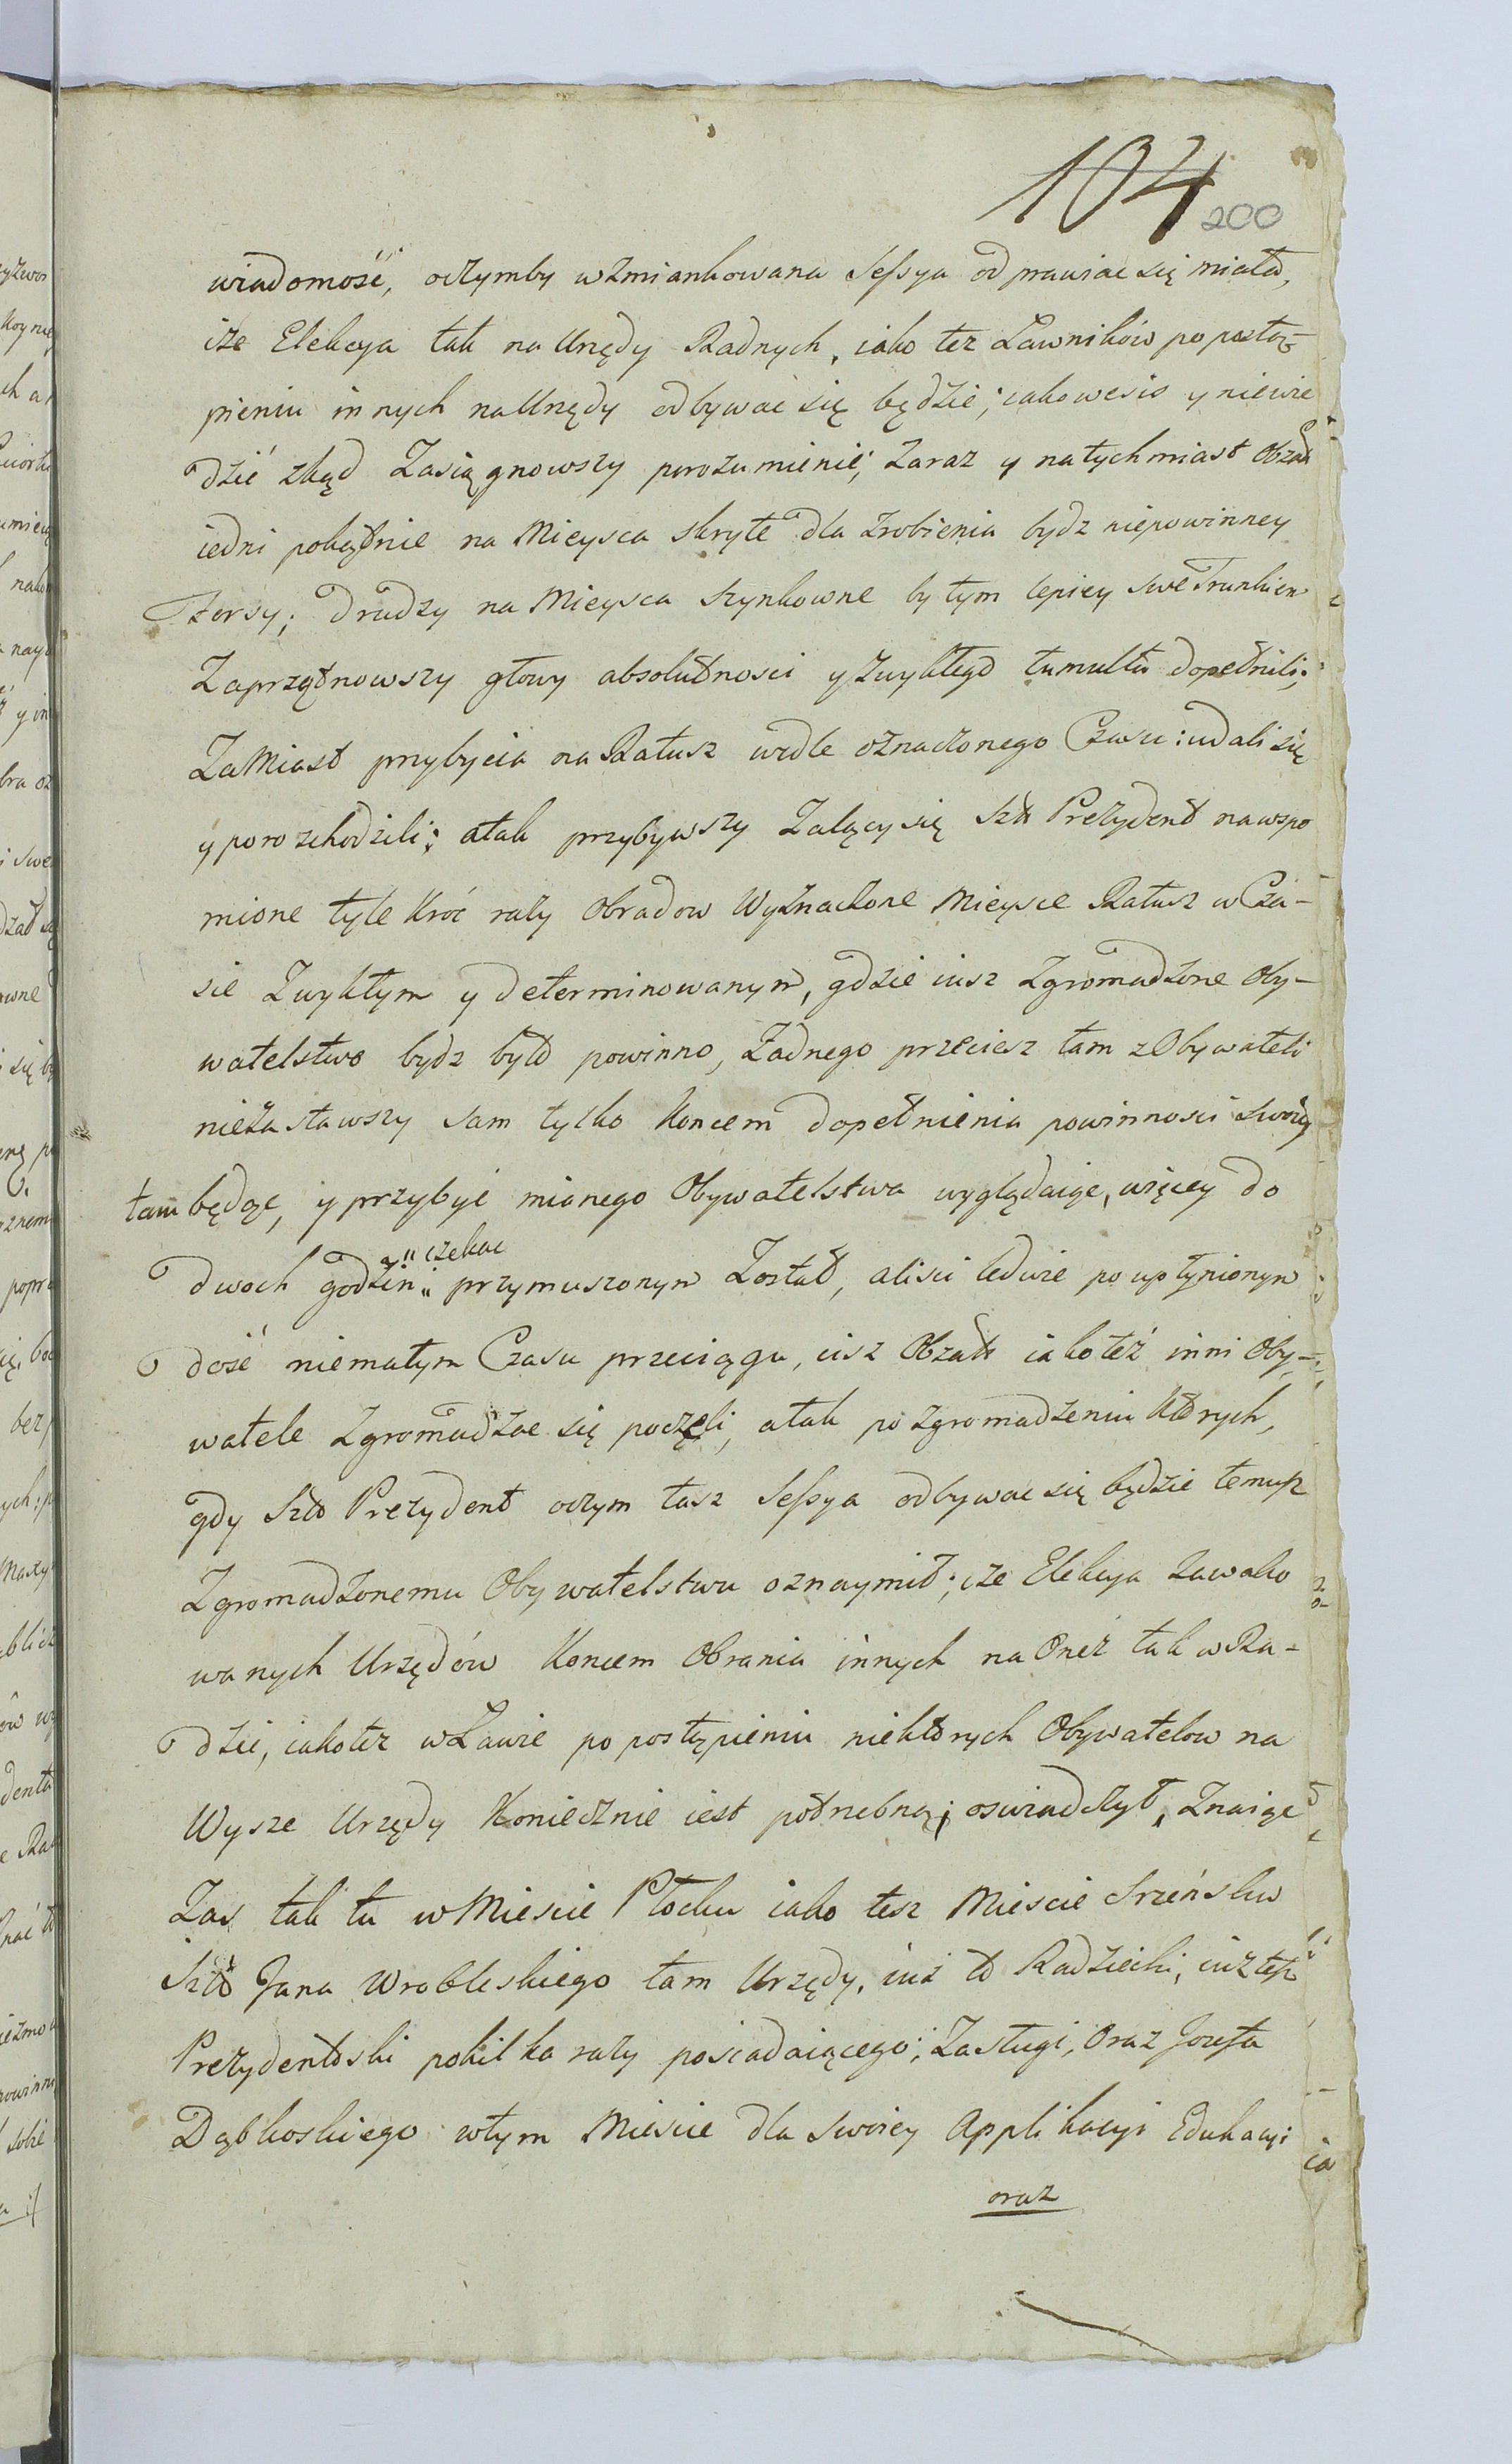 104 200
wiadomość, oczymby wzmiankowana Sessya odprawiac się miała,
iże Elekcya tak na Urzędy Radnych, iako tez Ławników po postą-
pieniu innych na Urzędy odbywać się będzie; iakowesis y niewie
dzić zkąd Zasiągnowszy porozumienie; Zaraz y natychmiast Obzał
iedni pokątnie na Mieysca skryte dla zrobienia bydz niepowinney
Fersy; drudzy na Mieysca szynkowne by tym lepiey swe Trunkiem
Zaprzątnowszy głowy absolutnosci y Zwykłego tumultu dopełnili;
Zamiast przybycia na Ratusz wedle oznaczonego Czasu: udali się
y porozchodzili; atak przybywszy Zalący się Szł Prezydent na wspo
mione tyle kroć razy Obradow Wyznaczone Mieysce Ratusz w Cza-
sie Zwykłym y determinowanym, gdzie iusz Zgromadzone Oby-
watelstwo bydz było powinno, Żadnego przeciesz tam z Obywateli
niezastawszy sam tylko koncem dopełnienia powinnosci swoiey
tam będąc, y przybyć mianego Obywatelstwa wyglądaiąc, więcey do
" czekac
dwoch godzin " przymuszonym Został, alisci ledwie po upłynionym
dość niemałym Czasu przeciągu, iusz Obzałł iakoteż inni Oby-
watele Zgromadzac się poczęli, atak po zgromadzeniu których,
gdy Szło Prezydent oczym tasz Sessya odbywac się będzie temusz
Zgromadzonemu Obywatelstwu oznaymił; iże Elekcya zawako
wanych Urzędów Koncem Obrania innych na Oneż tak w Ra-
dzie, iakotez w Ławie po postąpieniu niektórych Obywatelow na
Wysze Urzędy Koniecznie iest potrzebną; oswiadczył, Znaiąc
Zas tak tu w Miescie Płocku iako tesz Miescie Srzeńsku
Szło Jana Wrobleskiego tam Urzędy, iuż to Radziecki, iuż tesz
Prezydentski pokilka razy posiadaiącego; Zasługi, Oraz Jozefa
Dąbkoskiego wtym Miescie dla swoiey Applikacyi Edukacyi
oraz